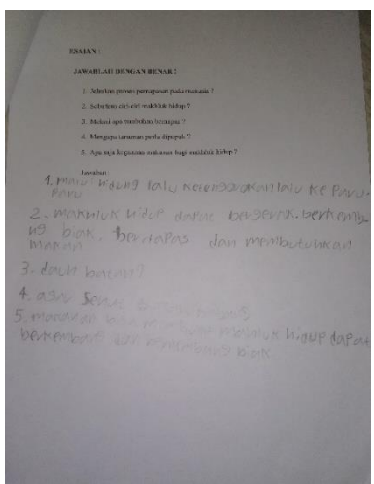 ESAIAN :
JAWABLAH DENGAN BENAR !
1. Sebutkan proses pernapasan pada manusia ?
2. Sebutkan ciri-ciri makhluk hidup ?
3. Melalui apa tumbuhan bernapas ?
4. Mengapa tanaman perlu dipupuk ?
5. Apa saja kegunaan makanan bagi makhluk hidup ?
Jawaban :
1. hidung lalu lalu ke Paru-
Paru
2. makhluk hidup dapat bergerak, berkemb
ng biak, bernapas dan membutuhkan
makan
3. daun
4. agar
5. makanan hidup dapat
berkembang dan biak